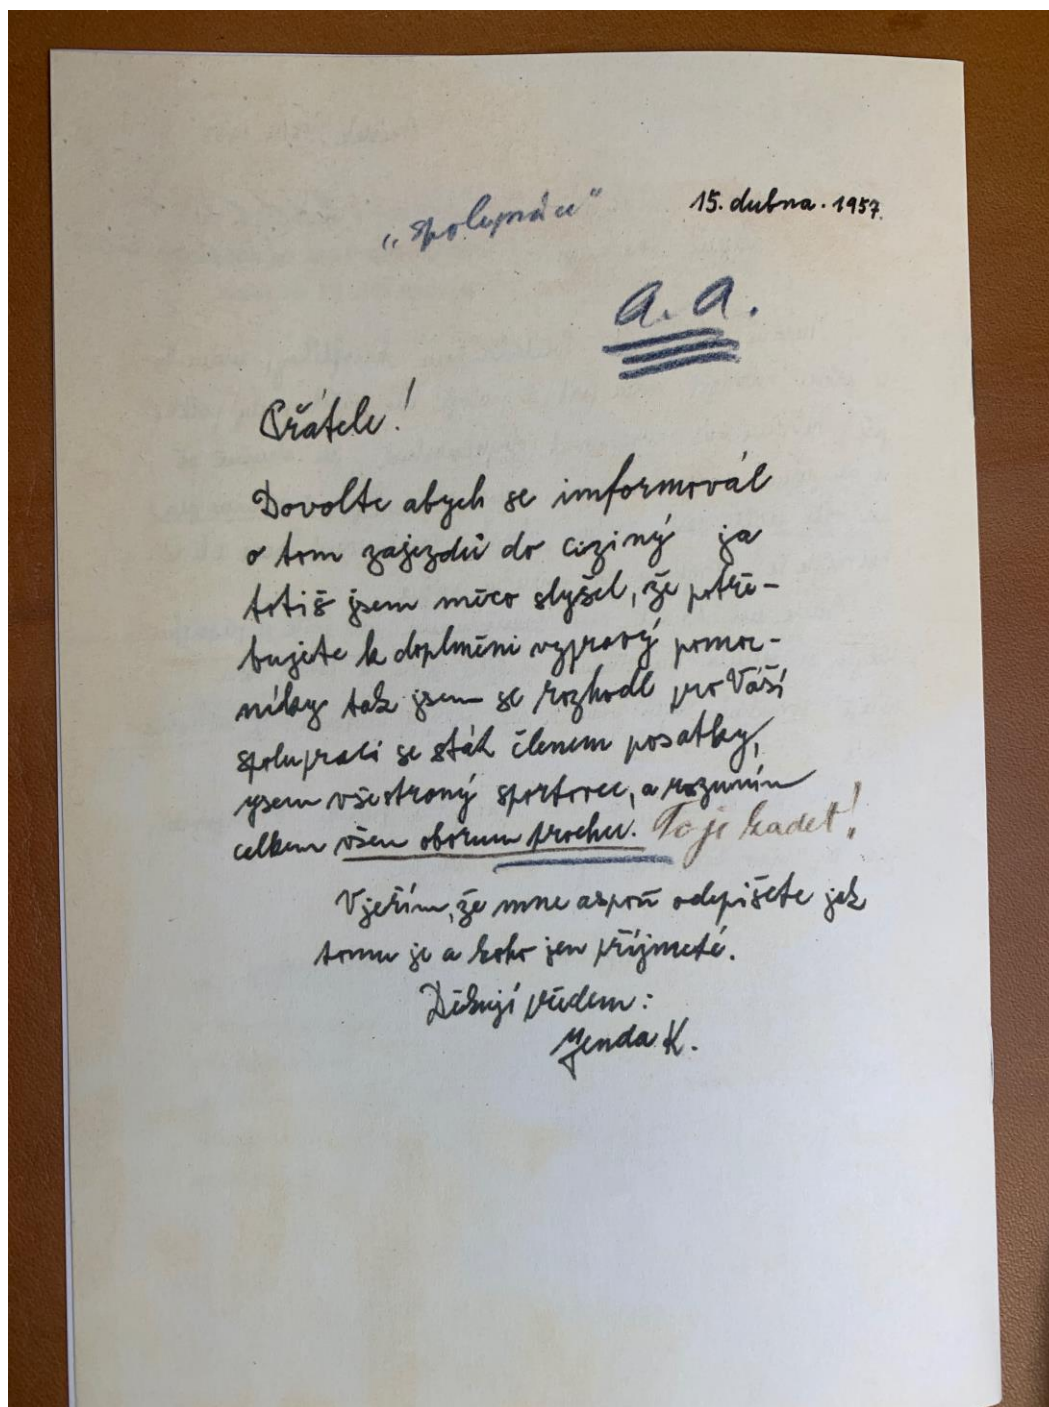 „spolupráce"
15. dubna. 1957.
a. a.
Přátele!
Dovolte abych se imformovál
o tom zajezdů do ciziný ja
totiš jsem něco slyšel, že potře-
bujete k doplněni vypravý pomoc-
níky tak jsem se rozhodl pro Váší
spolupraci se stát členem posatky,
ysem všestraný sportovec, a rozumím
celkem všem oborum trochu. To je kadet!
Vjeřím, že mne aspoň odepišete jak
tomu je a koho jen příjmeté.
Děkují předem:
Jenda K.